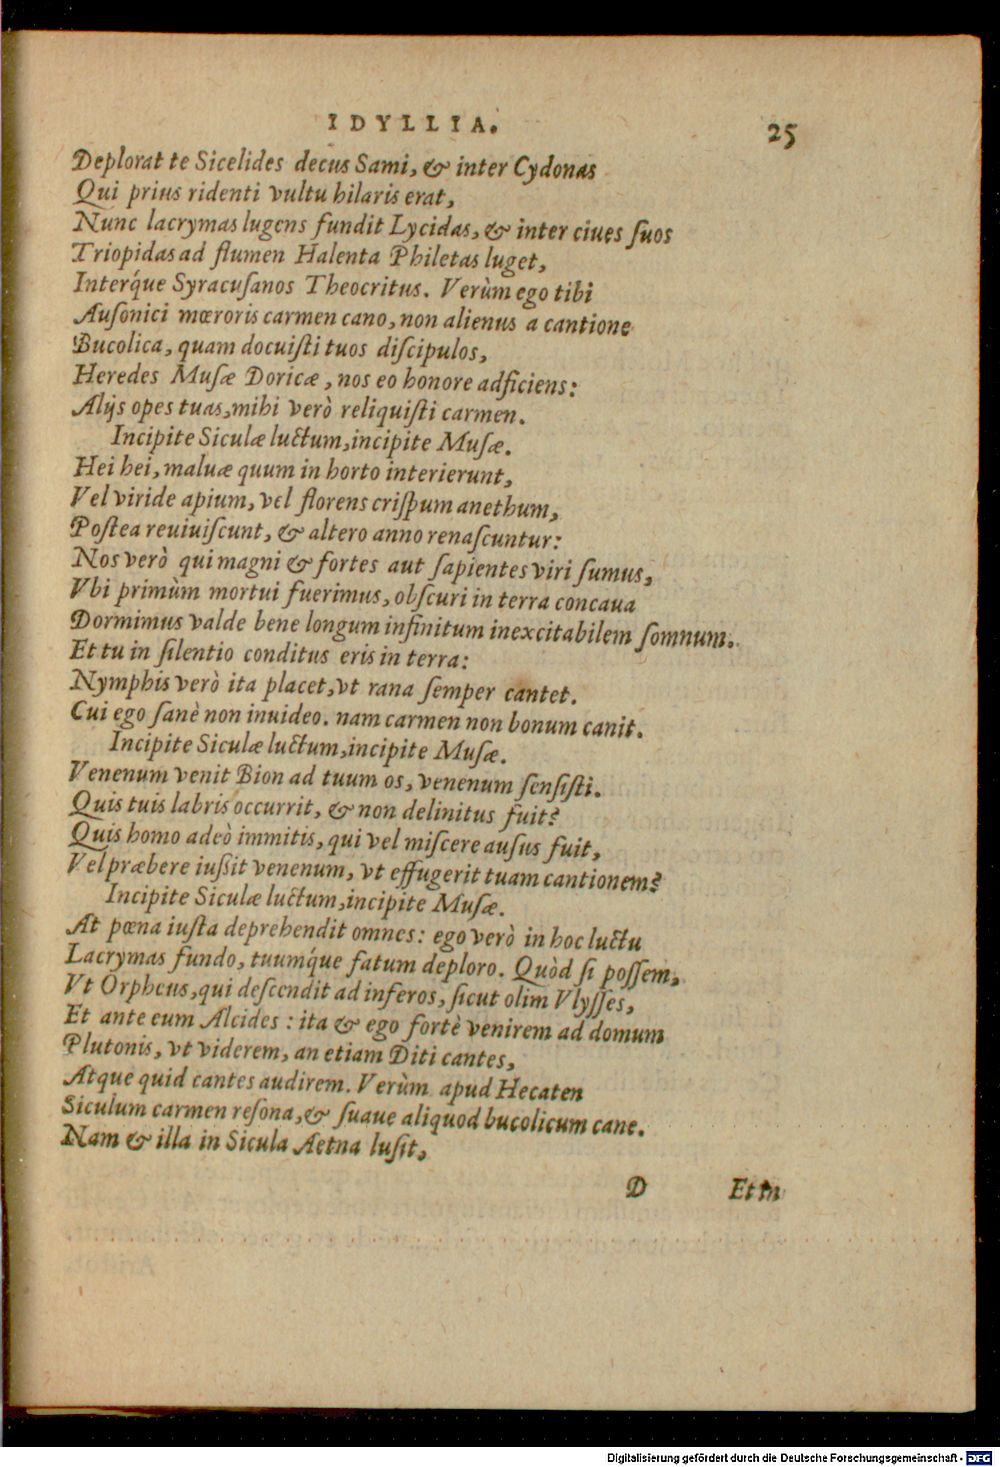 IDYLLIA. 25
Deplorat te Sicelides decus Sami, & inter Cydonas
Qui prius ridenti vultu hilaris erat,
Nunc lacrymas lugens fundit Lycidas, & inter ciues suos
Triopidas ad flumen Halenta Philetas luget,
Interq́ue Syracusanos Theocritus. Verùm ego tibi
Ausonici mœroris carmen cano, non alienus a cantione
Bucolica, quam docuisti tuos discipulos,
Heredes Musæ Doricæ, nos eo honore adficiens:
Alijs opes tuas, mihi verò reliquisti carmen.
Incipite Siculæ luctum, incipite Musæ.
Hei hei, maluæ quum in horto interierunt,
Vel viride apium, vel florens crispum anethum,
Postea reuiuiscunt, & altero anno renascuntur:
Nos verò qui magni & fortes aut sapientes viri sumus,
Vbi primùm mortui fuerimus, obscuri in terra concaua
Dormimus valde bene longum infinitum inexcitabilem somnum.
Et tu in silentio conditus eris in terra:
Nymphis verò ita placet, vt rana semper cantet.
Cui ego sanè non inuideo. nam carmen non bonum canit.
Incipite Siculæ luctum, incipite Musæ.
Venenum venit Bion ad tuum os, venenum sensisti.
Quis tuis labris occurrit, & non delinitus fuit?
Quis homo adeò immitis, qui vel miscere ausus fuit,
Vel præbere iußit venenum, vt effugerit tuam cantionem?
Incipite Siculæ luctum, incipite Musæ.
At pœna iusta deprehendit omnes: ego verò in hoc luctu
Lacrymas fundo, tuumq́ue fatum deploro. Quòd si possem,
Vt Orpheus, qui descendit ad inferos, sicut olim Vlysses,
Et ante eum Alcides: ita & ego fortè venirem ad domum
Plutonis, vt viderem, an etiam Diti cantes,
Atque quid cantes audirem. Verùm apud Hecaten
Siculum carmen resona, & suaue aliquod bucolicum cane.
Nam & illa in Sicula Aetna lusit,
D Et in
Digitalisierung gefördert durch die Deutsche Forschungsgemeinschaft - DFG